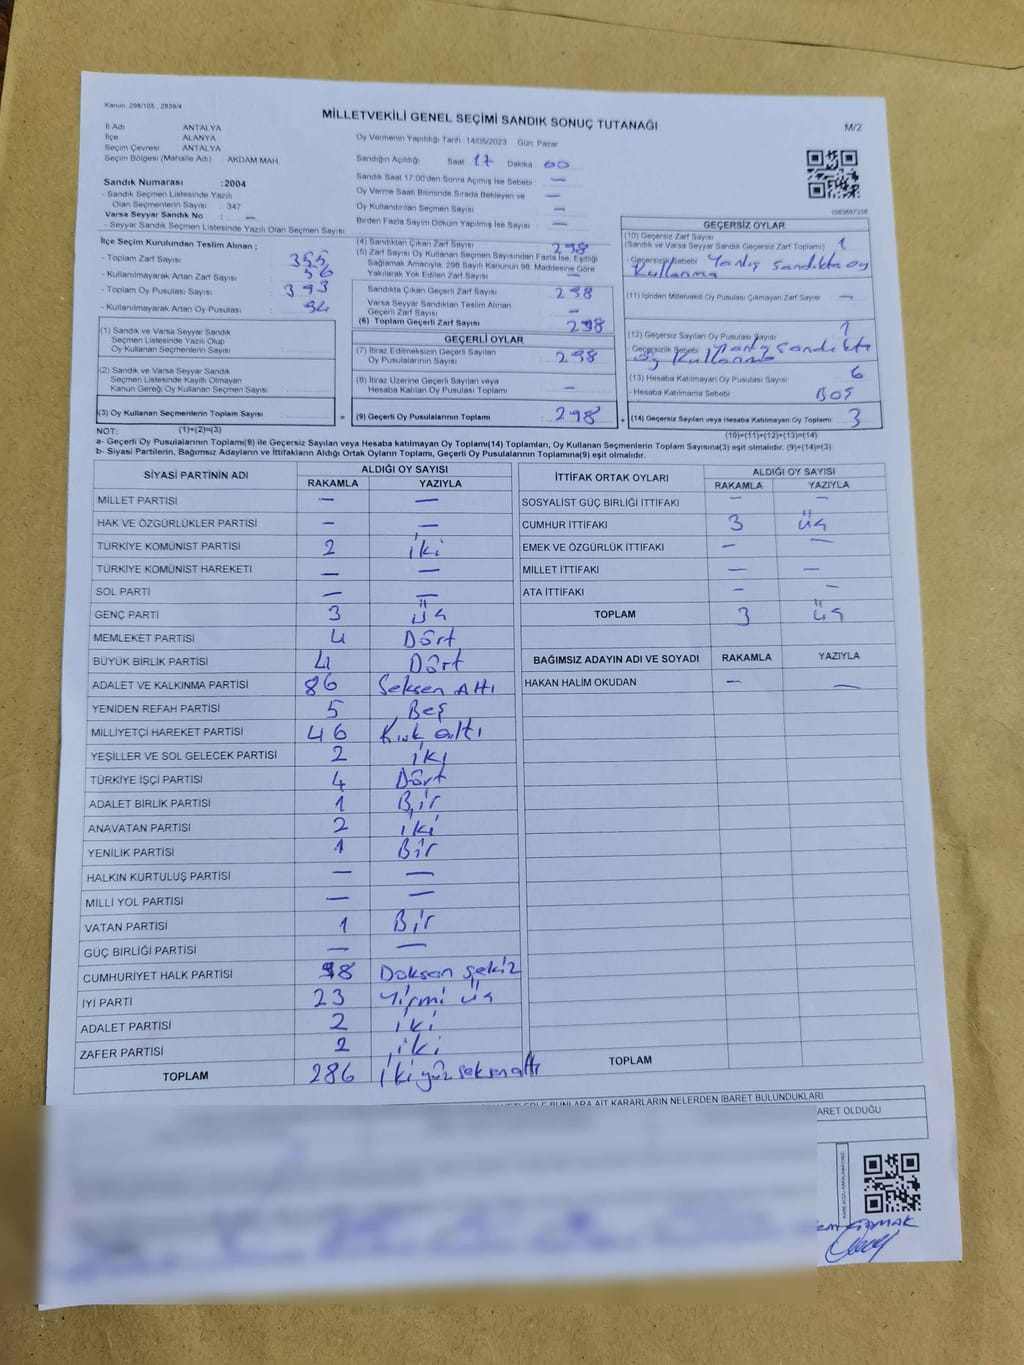 Kanun: 298/105, 2839/4
MİLLETVEKİLİ GENEL SEÇİMİ SANDIK SONUÇ TUTANAĞI
M/2
İl Adı : ANTALYA
İlçe : ALANYA
Seçim Çevresi : ANTALYA
Seçim Bölgesi (Mahalle Adı) AKDAM MAH
Oy Vermenin Yapıldığı Tarih :14/05/2023 Gün: Pazar
Sandığın Açıldığı Saat 17 Dakika 00
Sandık Saat 17:00'den Sonra Açılmış İse Sebebi : —
Oy Verme Saati Bitiminde Sırada Bekleyen ve
Oy Kullandırılan Seçmen Sayısı : —
Birden Fazla Sayım Döküm Yapılmış İse Sayısı : —
Sandık Numarası :2004
- Sandık Seçmen Listesinde Yazılı
Olan Seçmenlerin Sayısı : 347
Varsa Seyyar Sandık No : —
- Seyyar Sandık Seçmen Listesinde Yazılı Olan Seçmen Sayısı
1083697338
İlçe Seçim Kurulundan Teslim Alınan ;
- Toplam Zarf Sayısı : 355
- Kullanılmayarak Artan Zarf Sayısı : 56
- Toplam Oy Pusulası Sayısı : 393
- Kullanılmayarak Artan Oy Pusulası : 94
(1) Sandık ve Varsa Seyyar Sandık
Seçmen Listesinde Yazılı Olup
Oy Kullanan Seçmenlerin Sayısı :
(2) Sandık ve Varsa Seyyar Sandık
Seçmen Listesinde Kayıtlı Olmayan
Kanun Gereği Oy Kullanan Seçmen Sayısı :
(3) Oy Kullanan Seçmenlerin Toplam Sayısı :
(1)+(2)=(3)
(4) Sandıktan Çıkan Zarf Sayısı : 298
(5) Zarf Sayısı Oy Kullanan Seçmen Sayısından Fazla İse, Eşitliği
Sağlamak Amacıyla, 298 Sayılı Kanunun 98. Maddesine Göre
Yakılarak Yok Edilen Zarf Sayısı : —
Sandıkta Çıkan Geçerli Zarf Sayısı : 298
Varsa Seyyar Sandıktan Teslim Alınan
Geçerli Zarf Sayısı : —
(6) Toplam Geçerli Zarf Sayısı : 298
GEÇERLİ OYLAR
(7) İtiraz Edilmeksizin Geçerli Sayılan
Oy Pusulalarının Sayısı : 298
(8) İtiraz Üzerine Geçerli Sayılan veya
Hesaba Katılan Oy Pusulası Toplamı : —
= (9) Geçerli Oy Pusulalarının Toplamı : 298
GEÇERSİZ OYLAR
(10) Geçersiz Zarf Sayısı
(Sandık ve Varsa Seyyar Sandık Geçersiz Zarf Toplamı) : 1
- Geçersizlik Sebebi : Yanlış sandıkta oy
kullanma
(11) İçinden Milletvekili Oy Pusulası Çıkmayan Zarf Sayısı : —
(12) Geçersiz Sayılan Oy Pusulası Sayısı : 1
- Geçersizlik Sebebi : Yanlış sandıkta
oy kullanma
(13) Hesaba Katılmayan Oy Pusulası Sayısı : 6
- Hesaba Katılmama Sebebi : BOŞ
+ (14) Geçersiz Sayılan veya Hesaba Katılmayan Oy Toplamı : 3
(10)+(11)+(12)+(13)=(14)
NOT:
a- Geçerli Oy Pusulalarının Toplamı(9) ile Geçersiz Sayılan veya Hesaba katılmayan Oy Toplamı(14) Toplamları, Oy Kullanan Seçmenlerin Toplam Sayısına(3) eşit olmalıdır. (9)+(14)=(3)
b- Siyasi Partilerin, Bağımsız Adayların ve İttifakların Aldığı Ortak Oyların Toplamı, Geçerli Oy Pusulalarının Toplamına(9) eşit olmalıdır.
SİYASİ PARTİNİN ADI ALDIĞI OY SAYISI
RAKAMLA YAZIYLA
MİLLET PARTİSİ — —
HAK VE ÖZGÜRLÜKLER PARTİSİ — —
TÜRKİYE KOMÜNİST PARTİSİ 2 iki
TÜRKİYE KOMÜNİST HAREKETİ — —
SOL PARTİ — —
GENÇ PARTİ 3 üç
MEMLEKET PARTİSİ 4 Dört
BÜYÜK BİRLİK PARTİSİ 4 Dört
ADALET VE KALKINMA PARTİSİ 86 Seksen Altı
YENİDEN REFAH PARTİSİ 5 Beş
MİLLİYETÇİ HAREKET PARTİSİ 46 Kırk altı
YEŞİLLER VE SOL GELECEK PARTİSİ 2 iki
TÜRKİYE İŞÇİ PARTİSİ 4 Dört
ADALET BİRLİK PARTİSİ 1 Bir
ANAVATAN PARTİSİ 2 iki
YENİLİK PARTİSİ 1 Bir
HALKIN KURTULUŞ PARTİSİ — —
MİLLİ YOL PARTİSİ — —
VATAN PARTİSİ 1 Bir
GÜÇ BİRLİĞİ PARTİSİ — —
CUMHURİYET HALK PARTİSİ 98 Doksan sekiz
İYİ PARTİ 23 Yirmi üç
ADALET PARTİSİ 2 iki
ZAFER PARTİSİ 2 iki
TOPLAM 286 iki yüz seksen altı
İTTİFAK ORTAK OYLARI ALDIĞI OY SAYISI
RAKAMLA YAZIYLA
SOSYALİST GÜÇ BİRLİĞİ İTTİFAKI — —
CUMHUR İTTİFAKI 3 üç
EMEK VE ÖZGÜRLÜK İTTİFAKI — —
MİLLET İTTİFAKI — —
ATA İTTİFAKI — —
TOPLAM 3 üç
BAĞIMSIZ ADAYIN ADI VE SOYADI RAKAMLA YAZIYLA
HAKAN HALİM OKUDAN — —
TOPLAM
BUNLARA AİT KARARLARIN NELERDEN İBARET BULUNDUKLARI
ARET OLDUĞU